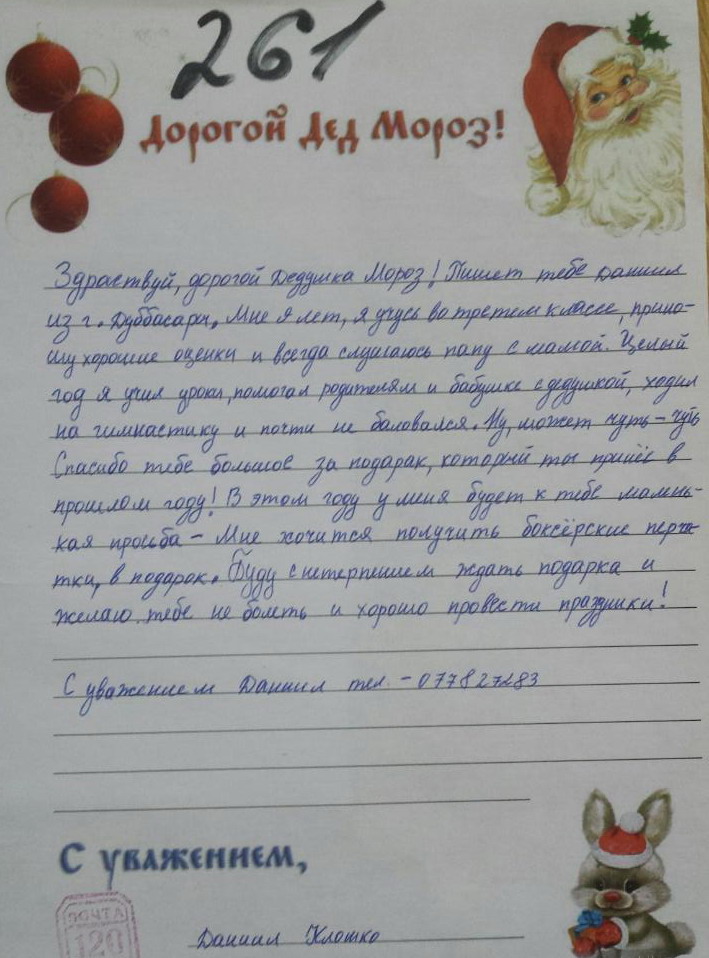 261
Дорогой Дед Мороз!
Здраствуй, дорогой Дедушка Мороз! Пишет тебе Даниил
из г. Дуббасари. Мне 9 лет, я учусь во третем классе, прино-
шу хорошие оценки и всегда слушаюсь папу с мамой. Целый
год я учил уроки, помогал родителям и бабушке с дедушкой, ходил
на гимнастику и почти не баловался. Ну, может чуть-чуть
Спасибо тебе большое за подарак, который ты принёс в
прошлом году! В этом году у меня будет к тебе малень-
кая прозьба - Мне хочится получить боксёрские перча-
тки, в подарок. Буду с нетерпением ждать подарка и
желаю тебе не болеть и хорошо провести праздники!
С уважением Даниил тел. - 077827283
С уважением,
ПОЧТА
120
Даниил Клошко